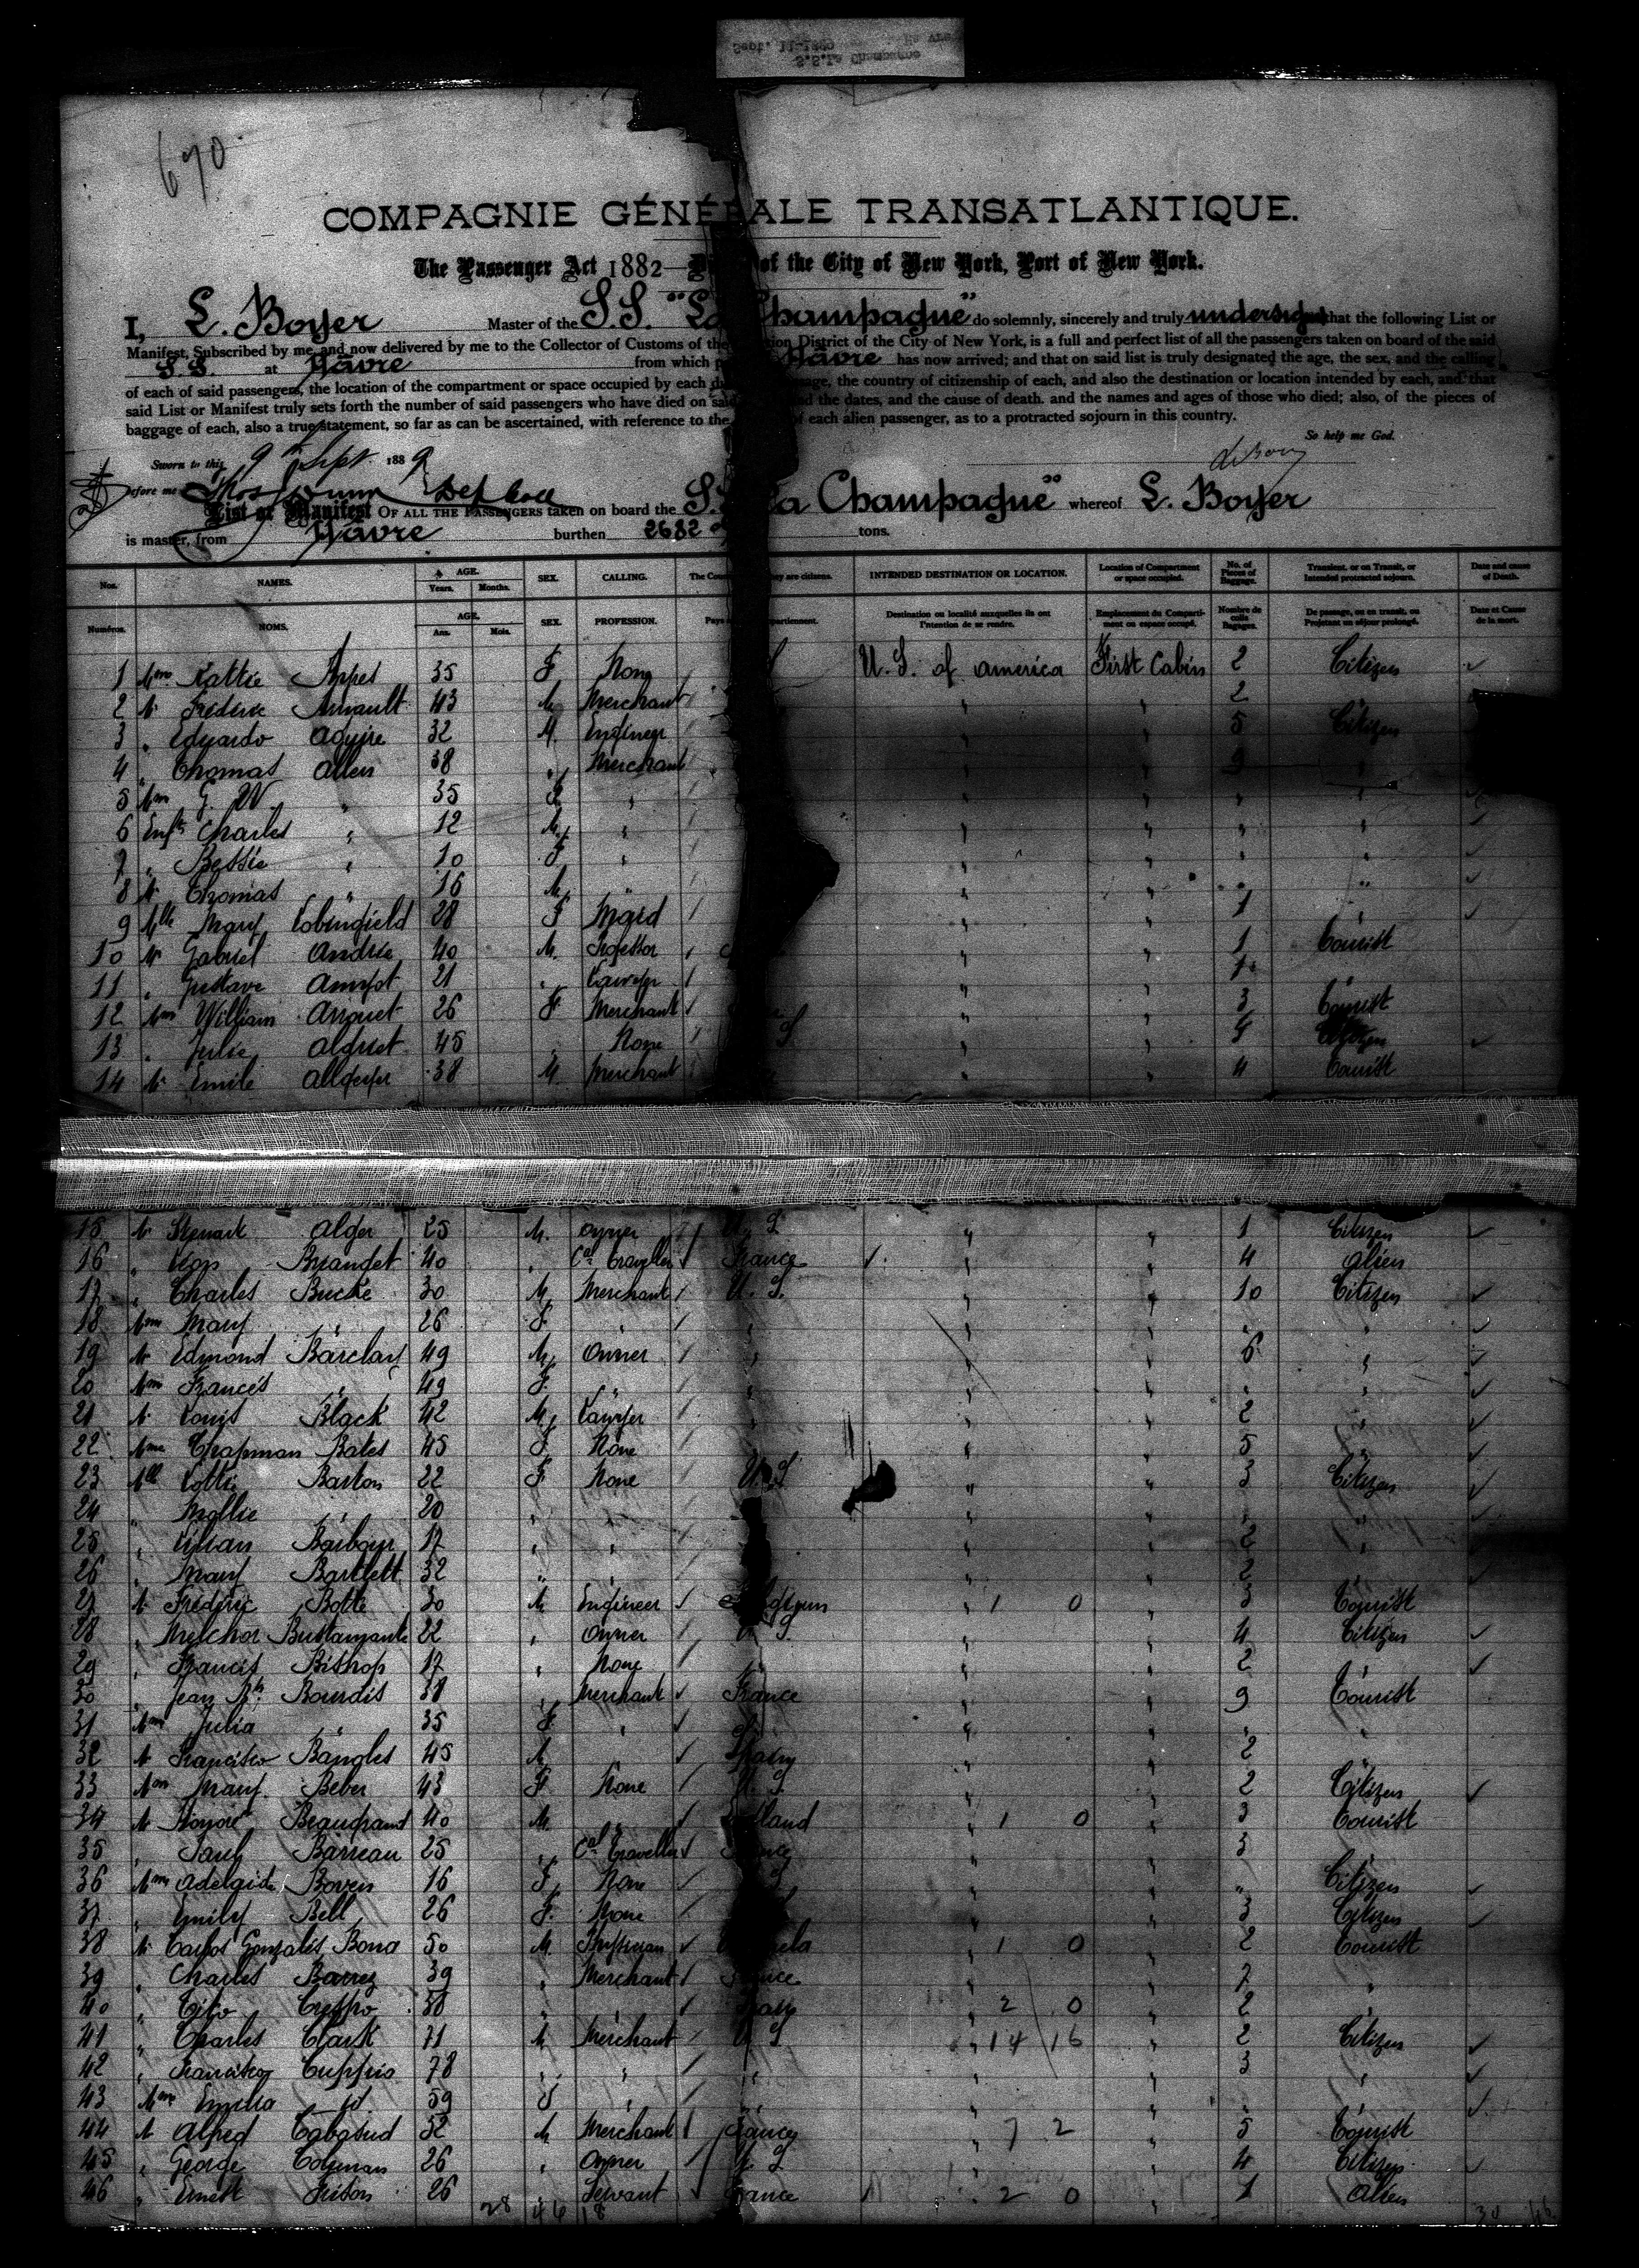 S.S. La Champagne
Sept. 11-1889
690
COMPAGNIE GÉNÉRALE TRANSATLANTIQUE.
The Passenger Act 1882 of the City of New York, Port of New York.
I, L. Boyer Master of the S.S. "La Champagne" do solemnly, sincerely and truly that the following List or
Manifest, Subscribed by me, and now delivered by me to the Collector of Customs of the District of the City of New York, is a full and perfect list of all the passengers taken on board of the said
S.S. at Hâvre from which Hâvre has now arrived; and that on said list is truly designated the age, the sex, and the calling
of each of said passengers, the location of the compartment or space occupied by each the country of citizenship of each, and also the destination or location intended by each, and that
said List or Manifest truly sets forth the number of said passengers who have died on said the dates, and the cause of death. and the names and ages of those who died; also, of the pieces of
baggage of each, also a true statement, so far as can be ascertained, with reference to the of each alien passenger, as to a protracted sojourn in this country.
So help me God.
Sworn to this 9th Sept. 1889
before me
List or Manifest OF ALL THE PASSENGERS taken on board the S.S. La Champagne" whereof L. Boyer
is master, from Hâvre burthen 2682 tons.
Nos. NAMES. AGE. Years. Months. SEX. CALLING. they are citizens. INTENDED DESTINATION OR LOCATION. Location of Compartment or space occupied. No. of Pieces of Baggage. Transient, or on Transit, or Intended protracted sojourn. Date and cause of Death.
Numéros. NOMS. AGE. Ans. Mois. SEX. PROFESSION. Pays Destination ou localité auxquelles ils ont l'intention de se rendre. Emplacement du Comparti- ment ou espace occupé. Nombre de colis Bagages. De passage, ou en transit, ou Projetant un séjour prolongé. Date et Cause de la mort.
1 Mme Kattie 35 F None U.S. of america First Cabin 2 Citizen
2 M. Frederic Arnault 43 M Merchant " " 2 "
3 " Eduardo 32 M. Engineer " " 5 Citizen
4 " Thomas Allen 38 " Merchant " " 9 "
5 Mme G. W. " 35 F. " " " " "
6 Enfts Charles " 12 M. " " " " "
7 " Bessie " 10 F " " " " "
8 M. Thomas " 16 M. " " " " "
9 Mlle Mary 28 F Maid " " 1 "
10 M. Gabriel Andrée 40 M. Professor " " 1 Tourist
11 " Gustave Amyot 21 " Lawyer " " 1 "
12 Mme William 26 F Merchant " " 3 Tourist
13 " Julie 45 " None " " Citizen
14 M. Emile 38 M. Merchant " " 4 Tourist
15 M. Stewart Alger 25 M. Owner U. S. " " 1 Citizen
16 " Léon 40 " Cal Traveller France " " 4 Alien
17 " Charles Bucke 30 M. Merchant U. S. " " 10 Citizen
18 Mme Mary " 26 F. " " " " " "
19 M. Edmond Barclay 49 M. Owner " " " 6 "
20 Mme Frances " 49 F. " " " " " "
21 M. Louis Black 42 M. Lawyer " " " 2 "
22 Mme Chapman Bates 45 F. None " " 5 "
23 Mlle Lottie Barton 22 F None U.S. " " 3 Citizen
24 " Mollie " 20 " " " " " "
25 " Lilian Barbour 17 " " " " 2 "
26 " Mary Bartlett 32 " " " " 2 "
27 M. Frédéric Botte 30 M. Engineer " 1 0 " 3 Tourist
28 " Melchor Bustamante 22 " Owner U. S. " " 4 Citizen
29 " Francis Bishop 17 " None " " 2 "
30 " Jean Bte Bourdis 38 " Merchant France " " 9 Tourist
31 Mme Julia " 35 F. " " " " " "
32 M. Francisco Bangles 45 M. " Spain " " 2 "
33 Mme Mary Beber 43 F. None U. S. " " 2 Citizen
34 M. Honoré Beaugrand 40 M. " " 1 0 " 3 Tourist
35 " Paul Barreau 25 " Cal Traveller France " " 3 "
36 Mme Adelaide Boven 16 F. None " " " Citizen
37 " Emily Bell 26 F. None " " 3 Citizen
38 M. Carlos Gonzales Bona 50 M. Physician " 1 0 " 2 Tourist
39 " Charles Barrez 39 " Merchant France " " 7 "
40 " Tito Crespo 38 " " " 2 0 " 2 "
41 " Charles Clark 71 M. Merchant U S " 14 16 " 2 Citizen
42 " Francisco 78 " " " " " 3 "
43 Mme Emilia id. 59 F " " " " " "
44 M. Alfred 52 M. Merchant France " 7 2 " 5 Tourist
45 " George Colman 26 " Owner U. S " " 4 Citizen
46 " Ernest 26 " Servant France " 2 0 " 1 Alien
28 46 18